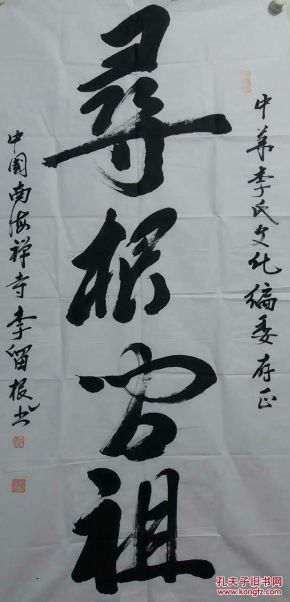 中华李氏文化编委存正
尋根问祖
中国南海禅寺李留根书
孔夫子旧书网
www.kongfz.com